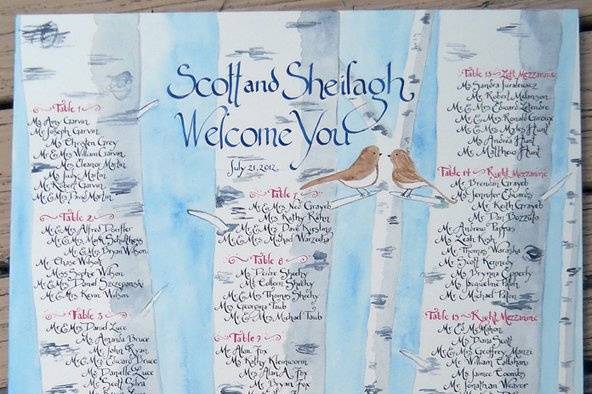 Scott and Sheilagh
Welcome You
July 21, 2012
Table 1
Ms Amy Garvin
Mr Joseph Garvin
Ms Grey
Mr & Mrs William Garvin
Mrs Eleanor Martin
Ms Judy Martin
Mr Robert Garvin
Mr & Mrs Martin
Table 2
Mr & Mrs Alfred Doerfler
Mr & Mrs Mark
Mr & Mrs Bryan Wilson
Mr Chase Wilson
Miss Sophie Wilson
Mr & Mrs Daniel Szczepanski
Mr & Mrs Kevin Wilson
Table 3
Mr & Mrs David Luce
Ms Amanda Bruce
Mr John Ryan
Mr & Mrs Edward Bruce
Ms Danielle Luce
Mr Scott Silva
Table 7
Mr & Mrs Ned Grayeb
Mrs Kathy Kuhn
Mr & Mrs Dave Kersline
Mr & Mrs Michael Warzecha
Table 8
Ms Deidre Sheehy
Ms Colleen Sheehy
Mr & Mrs Thomas Sheehy
Mrs Georgina Taub
Mr & Mrs Michael Taub
Table 9
Mr Alan Fox
Ms Kelly Kleinworm
Mr & Ms Alan A. Fox
Mr Bryan Fox
Table 13 ~ Left Mezzanine
Ms Sandra
Mr Robert Melanson
Mr & Mrs Edward Letendre
Mr & Mrs Ronald Giroux
Mr & Mrs Myles Hunt
Ms Andrea Hunt
Mr Matthew Hunt
Table 14 ~ Right Mezzanine
Mr Brendan Grayeb
Ms Jennifer Edwards
Mr Keith Grayeb
Mr Dan Bozzuto
Mr Andrew Pappas
Ms Leah Kish
Mr Thomas Warzecha
Mr Scott Kennedy
Ms Brynna Epperly
Ms Jacqueline Paton
Mr Michael Paton
Table 15 ~ Right Mezzanine
Mr Ed McMahon
Ms Dana Scott
Mr & Mrs Geoffrey Manzi
Mr William Callahan
Ms Jaimee Coombs
Mr Jonathan Weaver